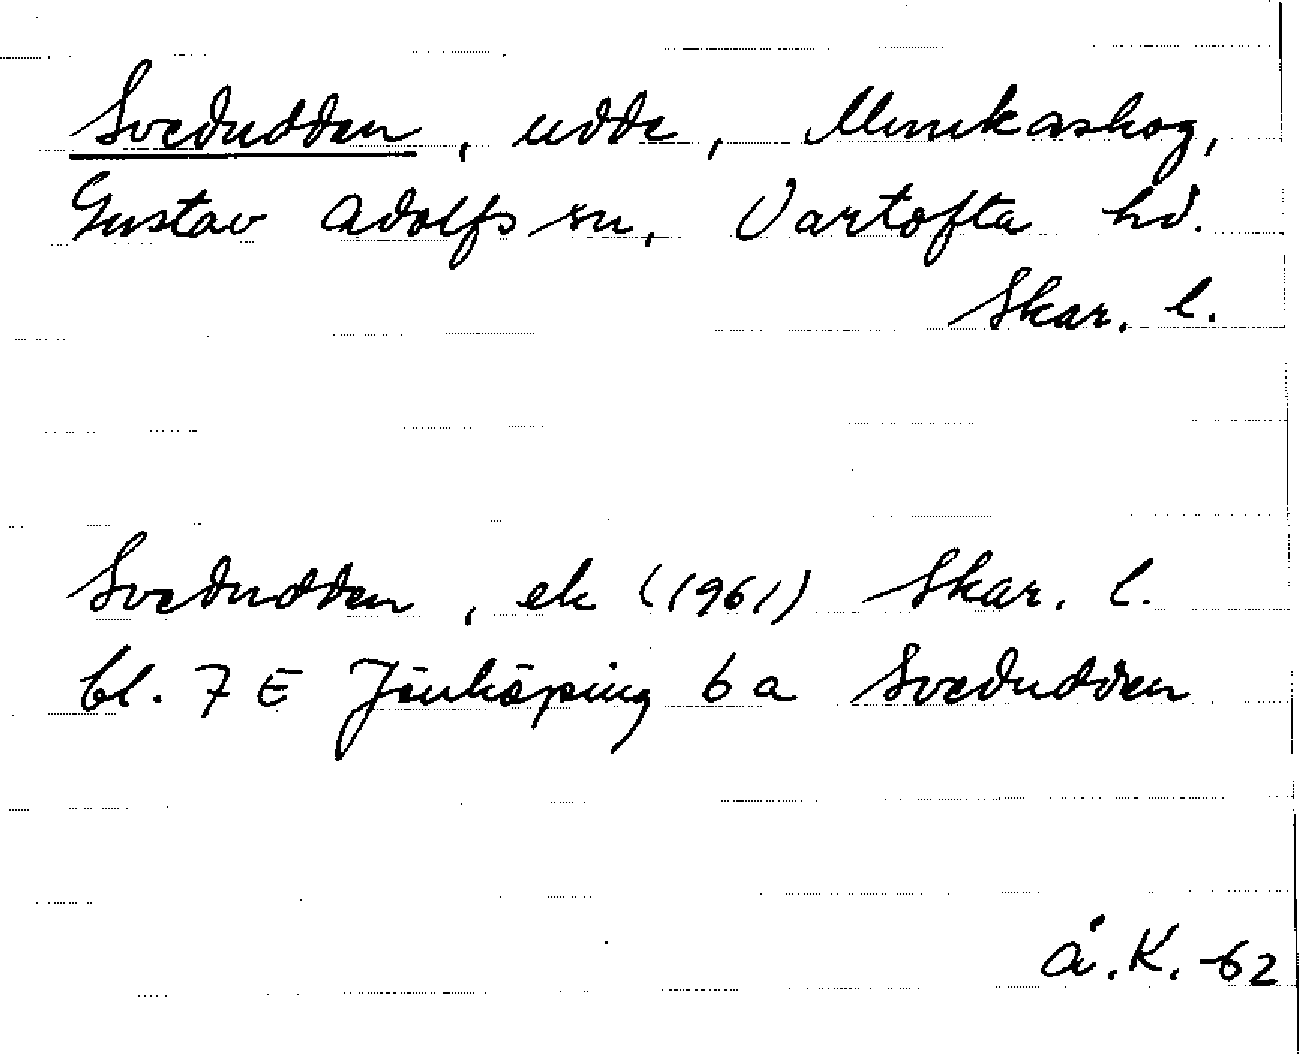 Svedudden, udde, Munkaskog,
Gustav Adolfs sn, Vartofta hd.
Skar. l.
Svedudden, ek (1961) Skar. l.
bl. 7 E Jönköping 6 a Svedudden
Å.K. -62